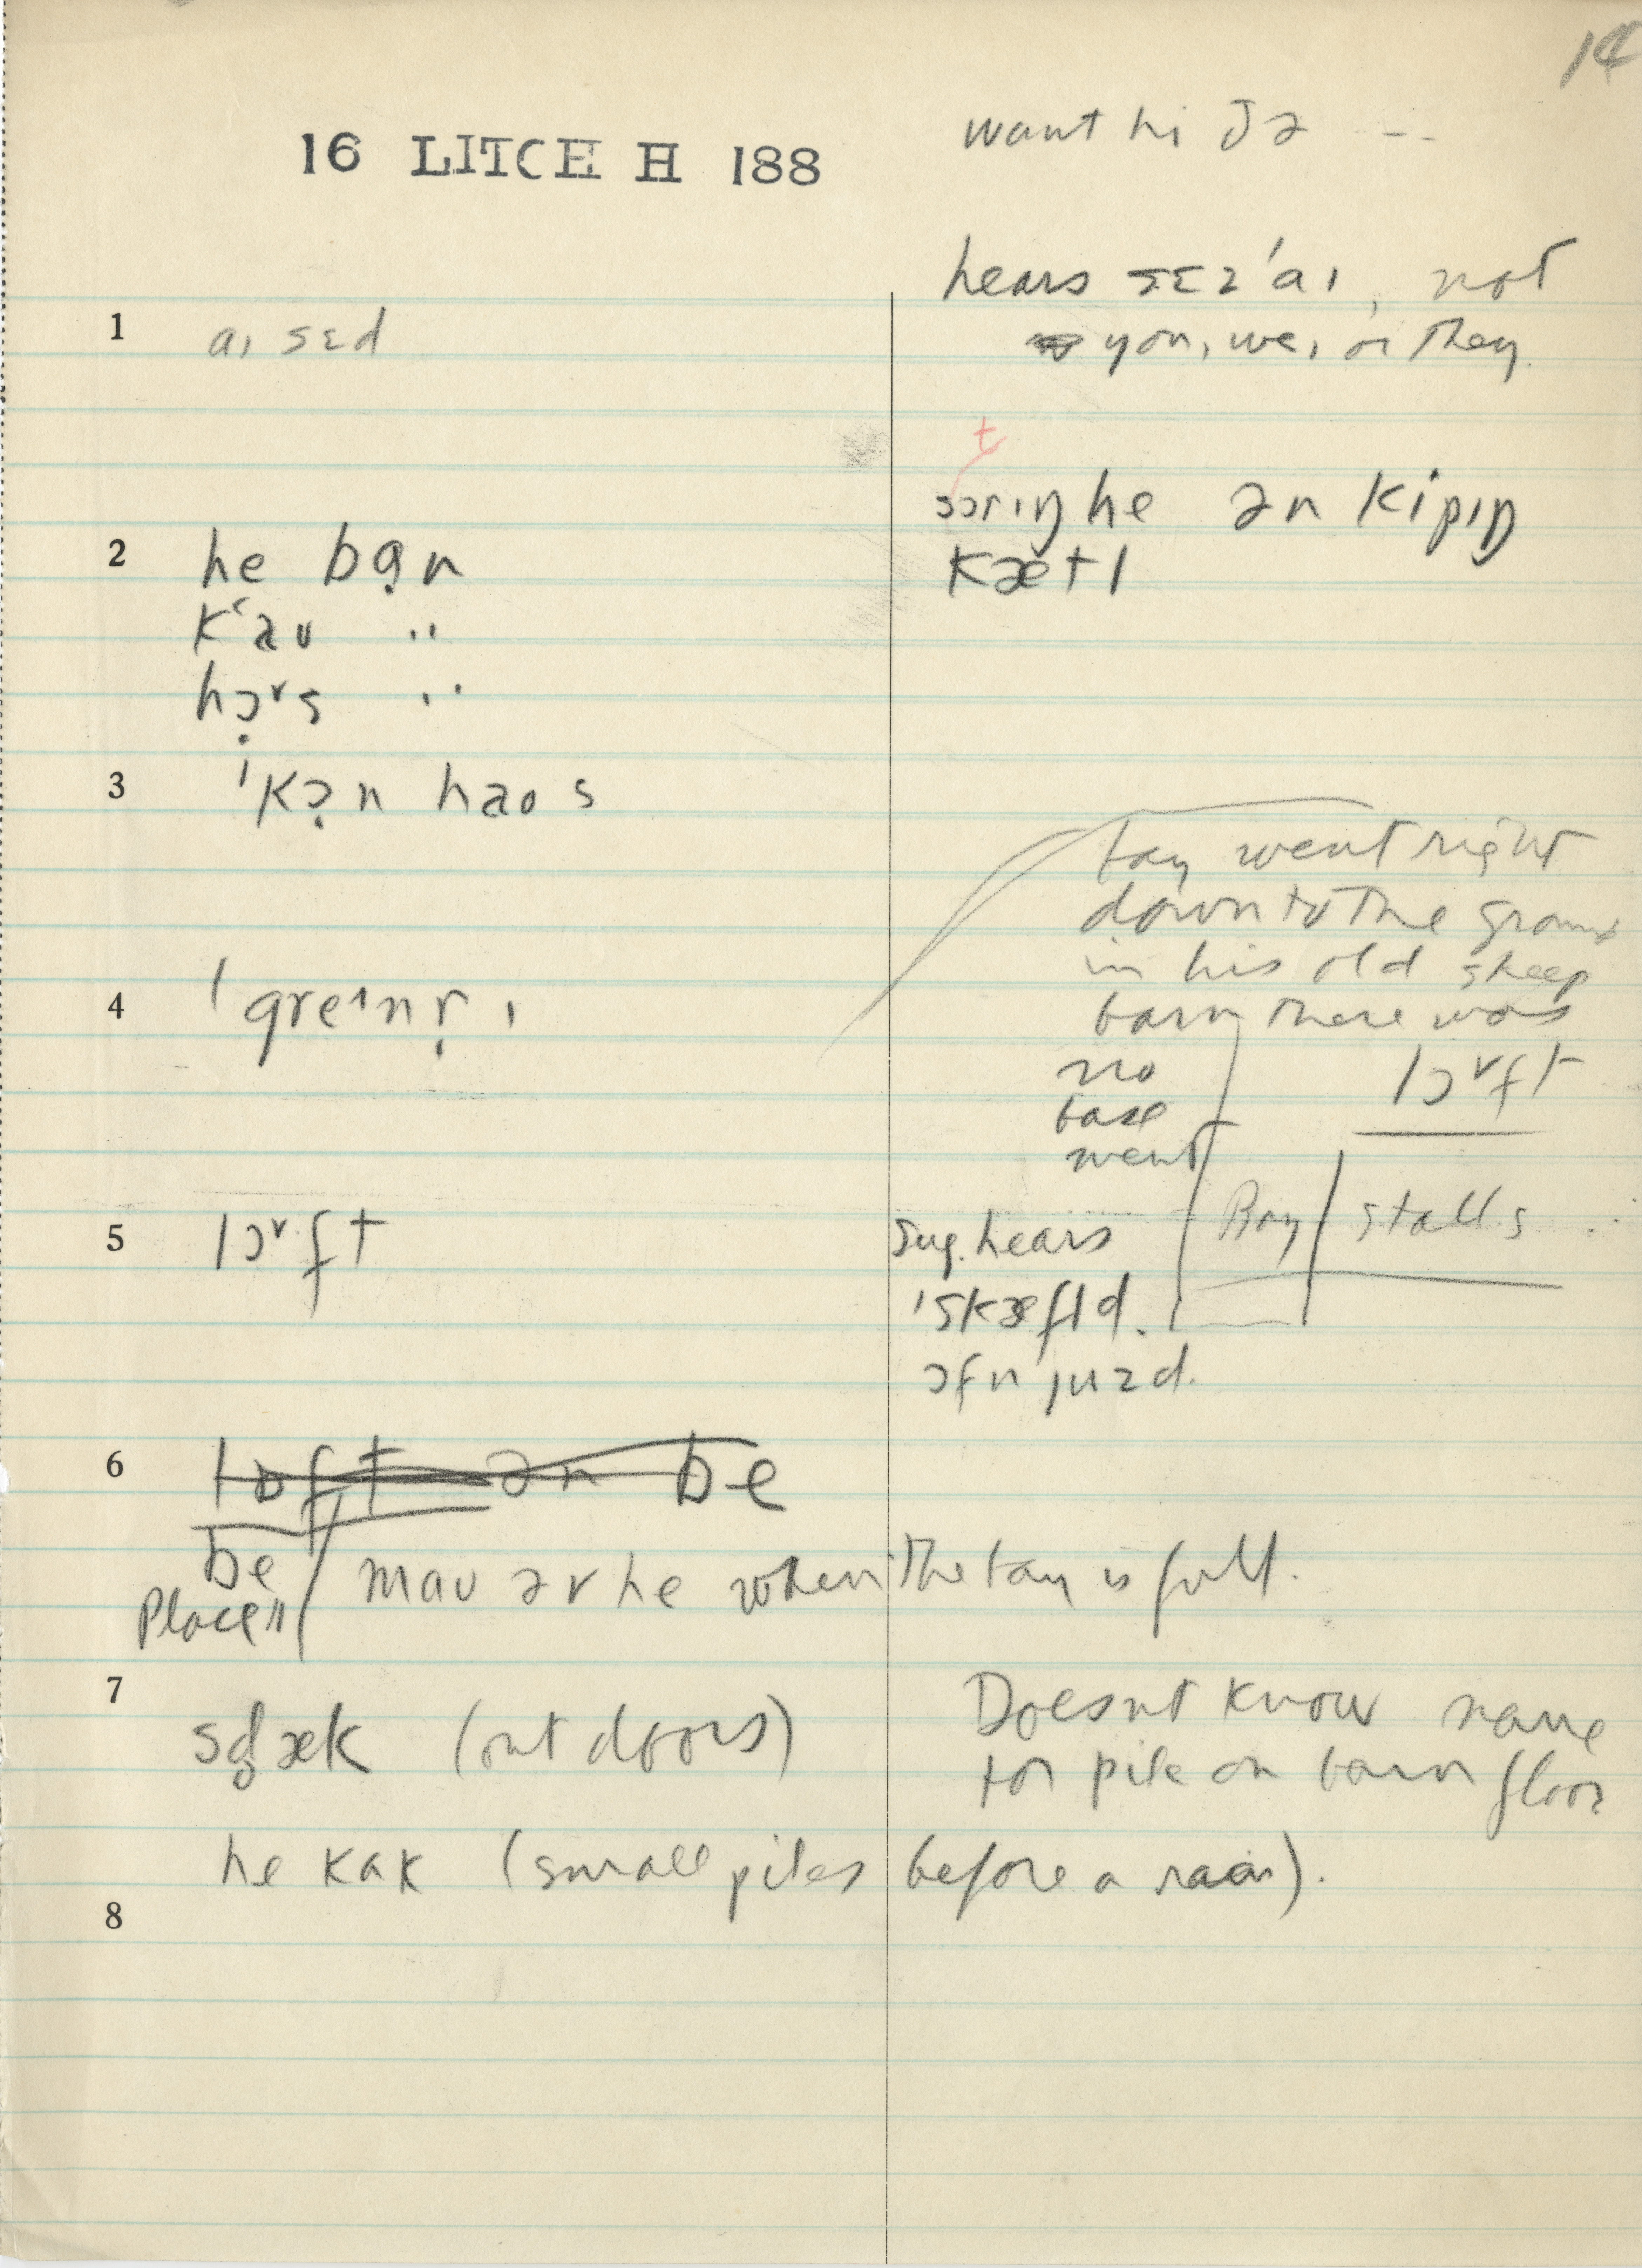 14
16 LITCH H 188
want hi ðə --
hears sɛz 'aɪ, not
you, we, or they.
1 aɪ sɛd
t
stɔrɪŋ he ən kipɪŋ
kætl
2 he bạn
k‘aʊ "
hɔ̣˅s "
3 'kɔ̣n haos
bay went right
down to the ground
in his old sheep
barn there was
no lɔ˅ft
base
ment
4 'greɪnrɪ
5 lɔ˅ft
Bay stalls
Sug. hears
'skæfld.
ɔfn juzd.
6 lɒft ən be
be
Place
maʊ əv he when the bay is full.
7 stæk (out doors)
Doesnt know name
for pile on barn floor
he kak (small piles before a rain).
8